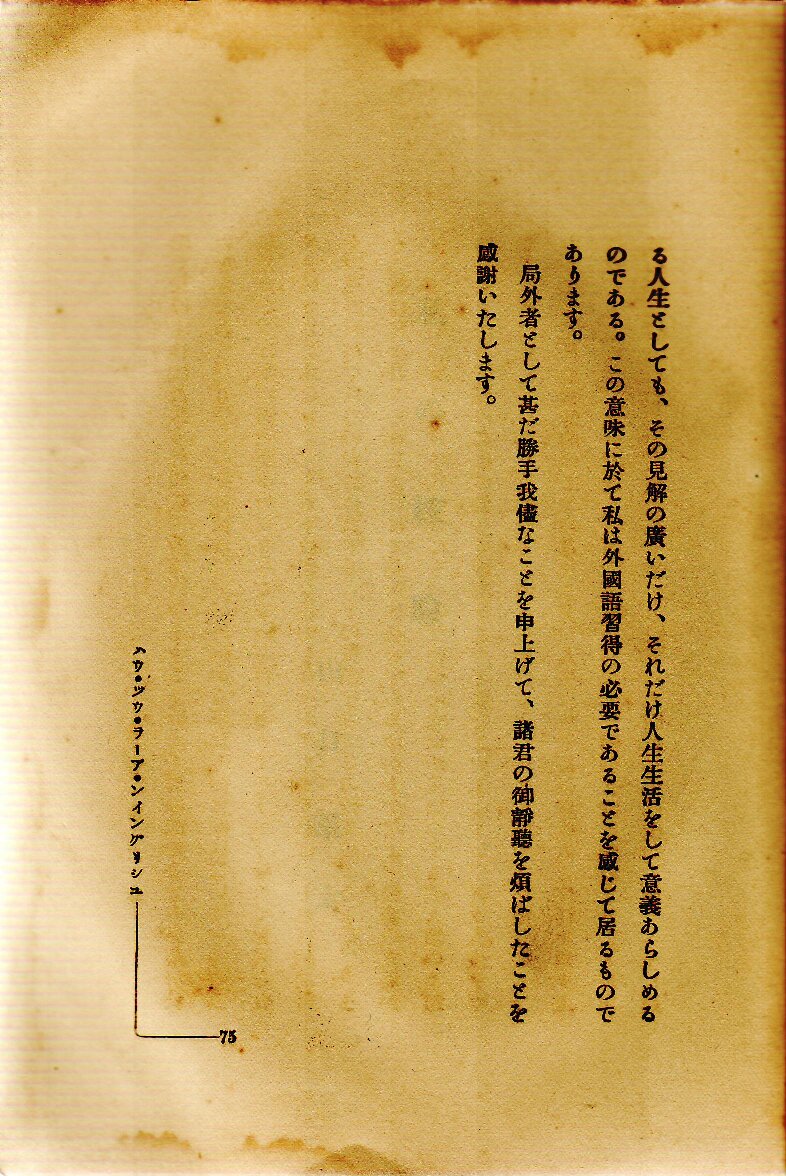 る人生としても、その見解の廣いだけ、それだけ人生生活をして意義あらしめる
のである。この意味に於て私は外國語習得の必要であることを感じて居るもので
あります。
局外者として甚だ勝手我儘なことを申上げて、諸君の御靜聽を煩はしたことを
感謝いたします。
ハウ・ツウ・ラーア・ンイングリシユ
75